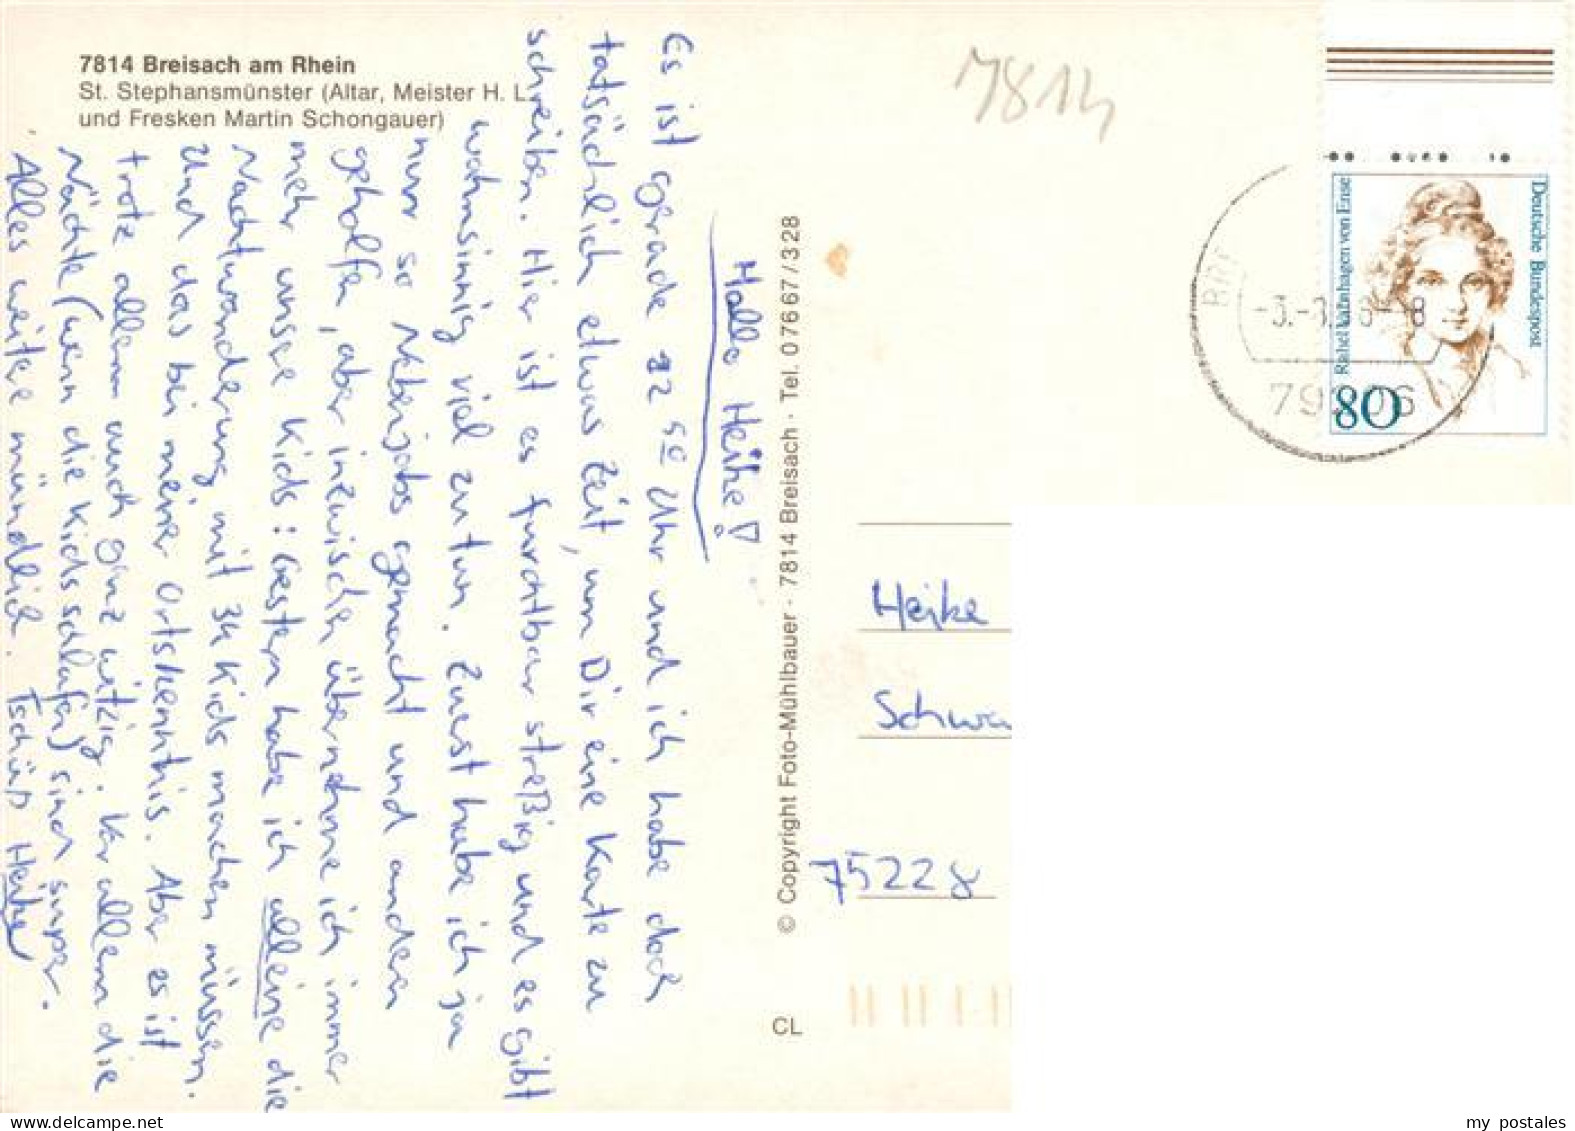 7814 Breisach am Rhein
St. Stephansmünster (Altar, Meister H. L.
und Fresken Martin Schongauer)
Hallo Heike!
Es ist gerade 22 50 Uhr und ich habe doch
tatsächlich etwas Zeit, um Dir eine Karte zu
schreiben. Hier ist es furchtbar streßig und es gibt
wahnsinnig viel zu tun. Zuerst habe ich ja
nur so Nebenjobs gemacht und anderen
geholfen, aber inzwischen übernehme ich immer
mehr unsre Kids: Gestern habe ich alleine die
Nachtwanderung mit 34 Kids machen müssen.
Und das bei meiner Ortskenntnis. Aber es ist
trotz allem auch ganz witzig. Vor allem die
Nächte (wenn die Kids schlafen) sind super.
Alles weitere mündlich. Tschüß Heike
© Copyright Foto-Mühlbauer · 7814 Breisach · Tel. 07667/328
CL
7814
Deutsche Bundespost
Rahel Varnhagen von Ense
80
Heike
Schwa
75228
my postales